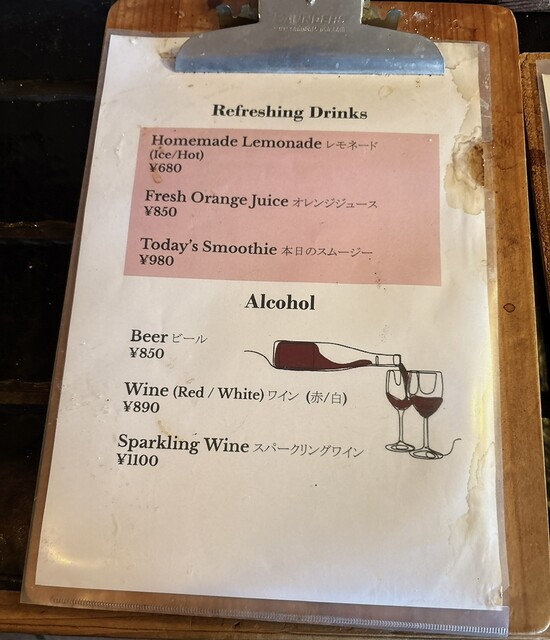 Refreshing Drinks
Homemade Lemonade レモネード
(Ice/Hot)
¥680
Fresh Orange Juice オレンジジュース
¥850
Today's Smoothie 本日のスムージー
¥980
Alcohol
Beer ビール
¥850
Wine (Red / White) ワイン (赤/白)
¥890
Sparkling Wine スパークリングワイン
¥1100